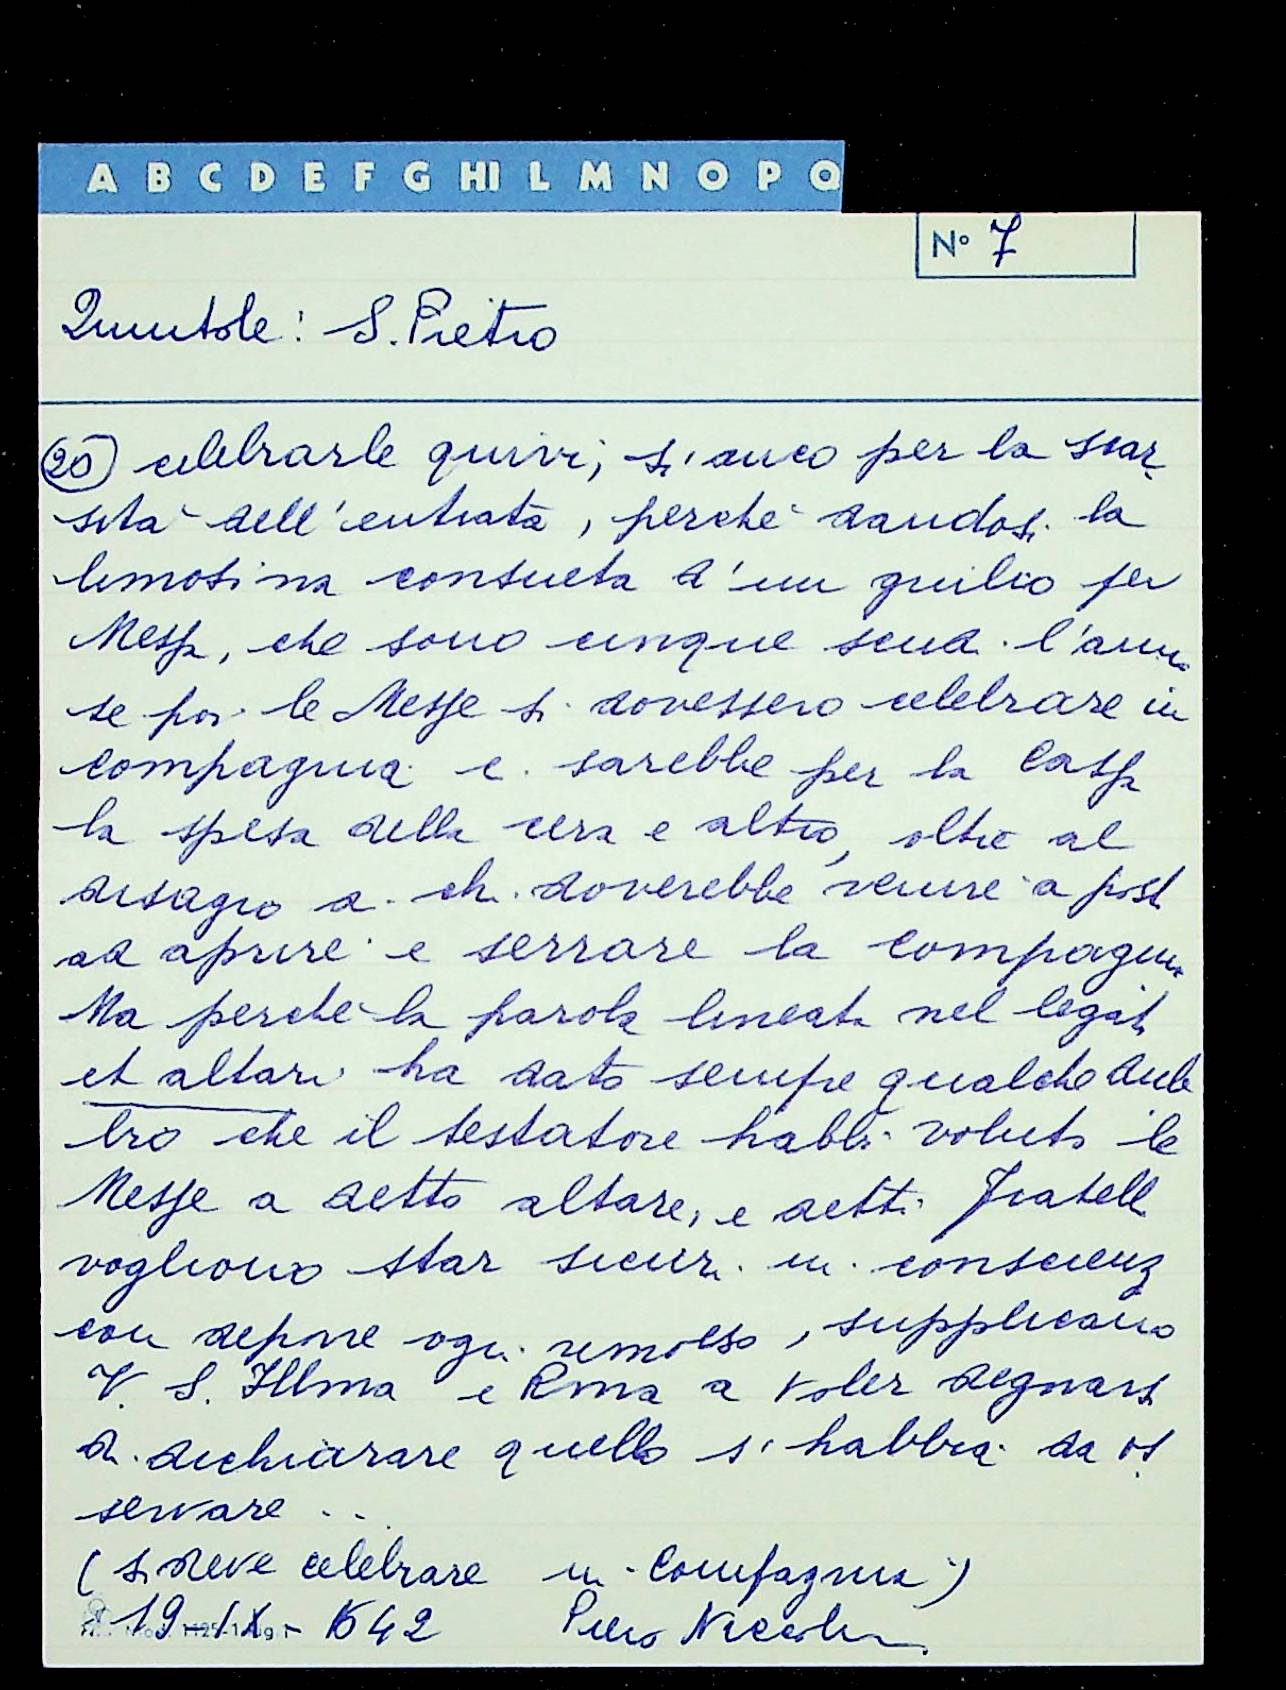 A B C D E F G HI L M N O P Q
N° 7
Quintole: S. Pietro
20 celebrarle quivi, si anco per la scar
sità dell'entrata, perchè dandosi la
limosina consueta d'un giulio per
Messa, che sono cinque scudi l'anno
se poi le Messe si dovessero celebrare in
Compagnia c. sarebbe per la Cassa
la spesa della cera e altro, oltre al
disagio di chi doverebbe venire a posta
ad aprire e serrare la Compagnia
Ma perchè la parola lineata nel legato
et altari ha dato sempre qualche dub
bio che il testatore habbi voluto le
Messe a detto altare, e detti Fratelli
vogliono star sicuri in conscienza
con depore ogni remorso, supplicano
V. S. Illma e Rma a voler degnarsi
di dichiarare quello si habbia da os
servare ..
(si deve celebrare in Compagnia)
19-IX-1642 Piero Niccolini